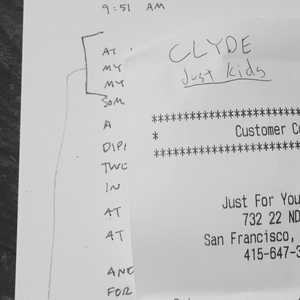 9:51 AM
AT
MY
MY
SOM
A
DIPI
TWO
IN
AT
AT
AND
FOR
CLYDE
Just Kids
*********************
* Customer Co
*********************
Just For You
732 22 ND
San Francisco,
415-647-3